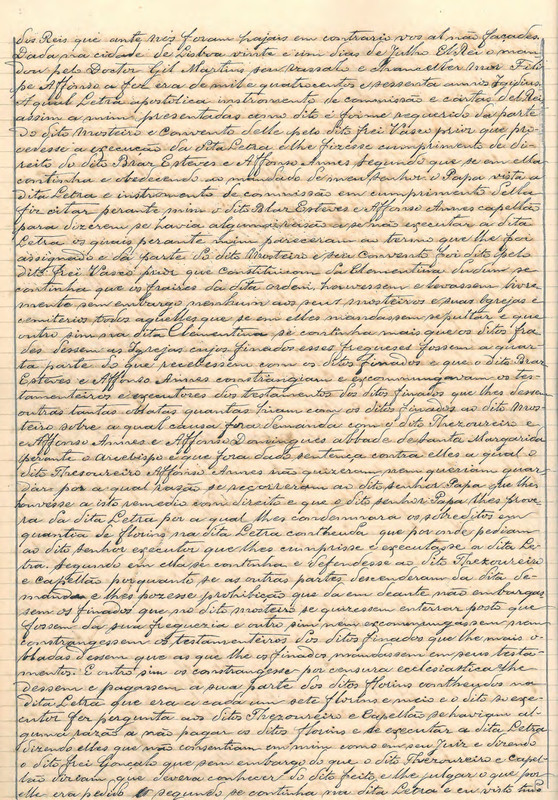 dos Reis que ante nós foram hajais em contrario vos al não façades.
Dada na cidade de Lisboa vinte e um dias de Julho ElRei o man-
dou pelo Doutor Gil Martins seu vassalo e Chanceller mor Filip-
pe Affonso a fez era de mil e quatrocentos e sessenta annos
A qual Letra apostolica instromento de commissão e cartas del Rei
assim a mim presentadas como dito é forme requerido da parte
do dito Mosteiro e Convento delle pelo dito frei Vasco prior que pro-
cedesse a execução da dita Letra e lhe fizesse cumprimento de di-
reito do dito Braz Esteves e Affonso Annes segundo que se em ella
continha e obedecendo ao mandado de meu senhor o Papa vista a
dita Letra e instromento de commissão em cumprimento della
fiz citar perante mim o dito Braz Esteves e Affonso Annes capellão
para dizerem se havia alguma razão a se não executar a dita
Letra os quais perante mim pareceram ao termo que lhe foi
assignado e da parte do dito Mosteiro e seu Convento foi dito pelo
dito Frei Vasco prior que constituicom da Clementina dudum se
continha que os fraires da dita ordem houvessem e levassem livre
mente sem embargo nenhum aos seus mosteiros e suas Igrejas e
cemiterios todos aquelles que se em elles mandassem sepultar e que
outro sim na dita Clementina se continha mais que os ditos fra-
des dessem as Igrejas cujos finados esses fregueses fossem a quar-
ta parte do que recebessem com os ditos finados e que o dito Braz
Esteves e Affonso Annes constrangiam e excommungavam os tes-
tamenteiros e executores dos testamentos dos ditos finados que lhes dessem
outras tantas obladas quantas hiram com os ditos finados ao dito Mos-
teiro sobre a qual causa fora demanda com o dito Thezoureiro e
e Affonso Annes e Affonso Domingues abbade de Santa Margarida
perante o Arcebispo e que fora dada sentença contra elles a qual o
dito Thezoureiro Affonso Annes não quizeram, nem queriam guar-
dar por a qual rasão se recorreram ao dito senhor Papa que lhes
houvesse a isto remedio com direito e que o dito senhor Papa lhes prove-
ra da dita Letra por a qual lhes condemnara os sobreditos em
quantia de florins na dita Letra contheuda que por onde pediam
ao dito senhor executor que lhes cumprisse e executasse a dita Le-
tra segundo em ella se continha e defendesse ao dito Thezoureiro
e capellão porquanto se as outras partes descenderam da dita de-
manda e lhes pozesse prohibição que da em deante não embargas-
sem os finados que no dito mosteiro se quizessem enterrar posto que
fossem da sua freguezia e outro sim nem excommungassem nem
constrangessem os testamenteiros dos ditos finados que lhe mais o-
bladas dessem que as que lhe os finados mandassem em seus testa-
mentos. E outro sim os constrangesse por censura ecclesiastica lhe
dessem e pagassem a sua parte dos ditos florins contheudos na
dita Letra que era a cada um sete florins e meio e o dito so exe-
cutor fez pergunta aos ditos Thezoureiro e Capellão se haviam al-
guma razão a não pagar os ditos florins e se executar a dita Letra
dizendo elles que não consentiam em mim como em seu Juiz e dizendo
o dito frei Gonçalo que sem embargo do que o dito Thezoureiro e capel-
lão diziam, que devera conhecer do dito feito, e lhe julgar o que por
elle era pedido segundo se continha na dita Letra e eu visto tudo